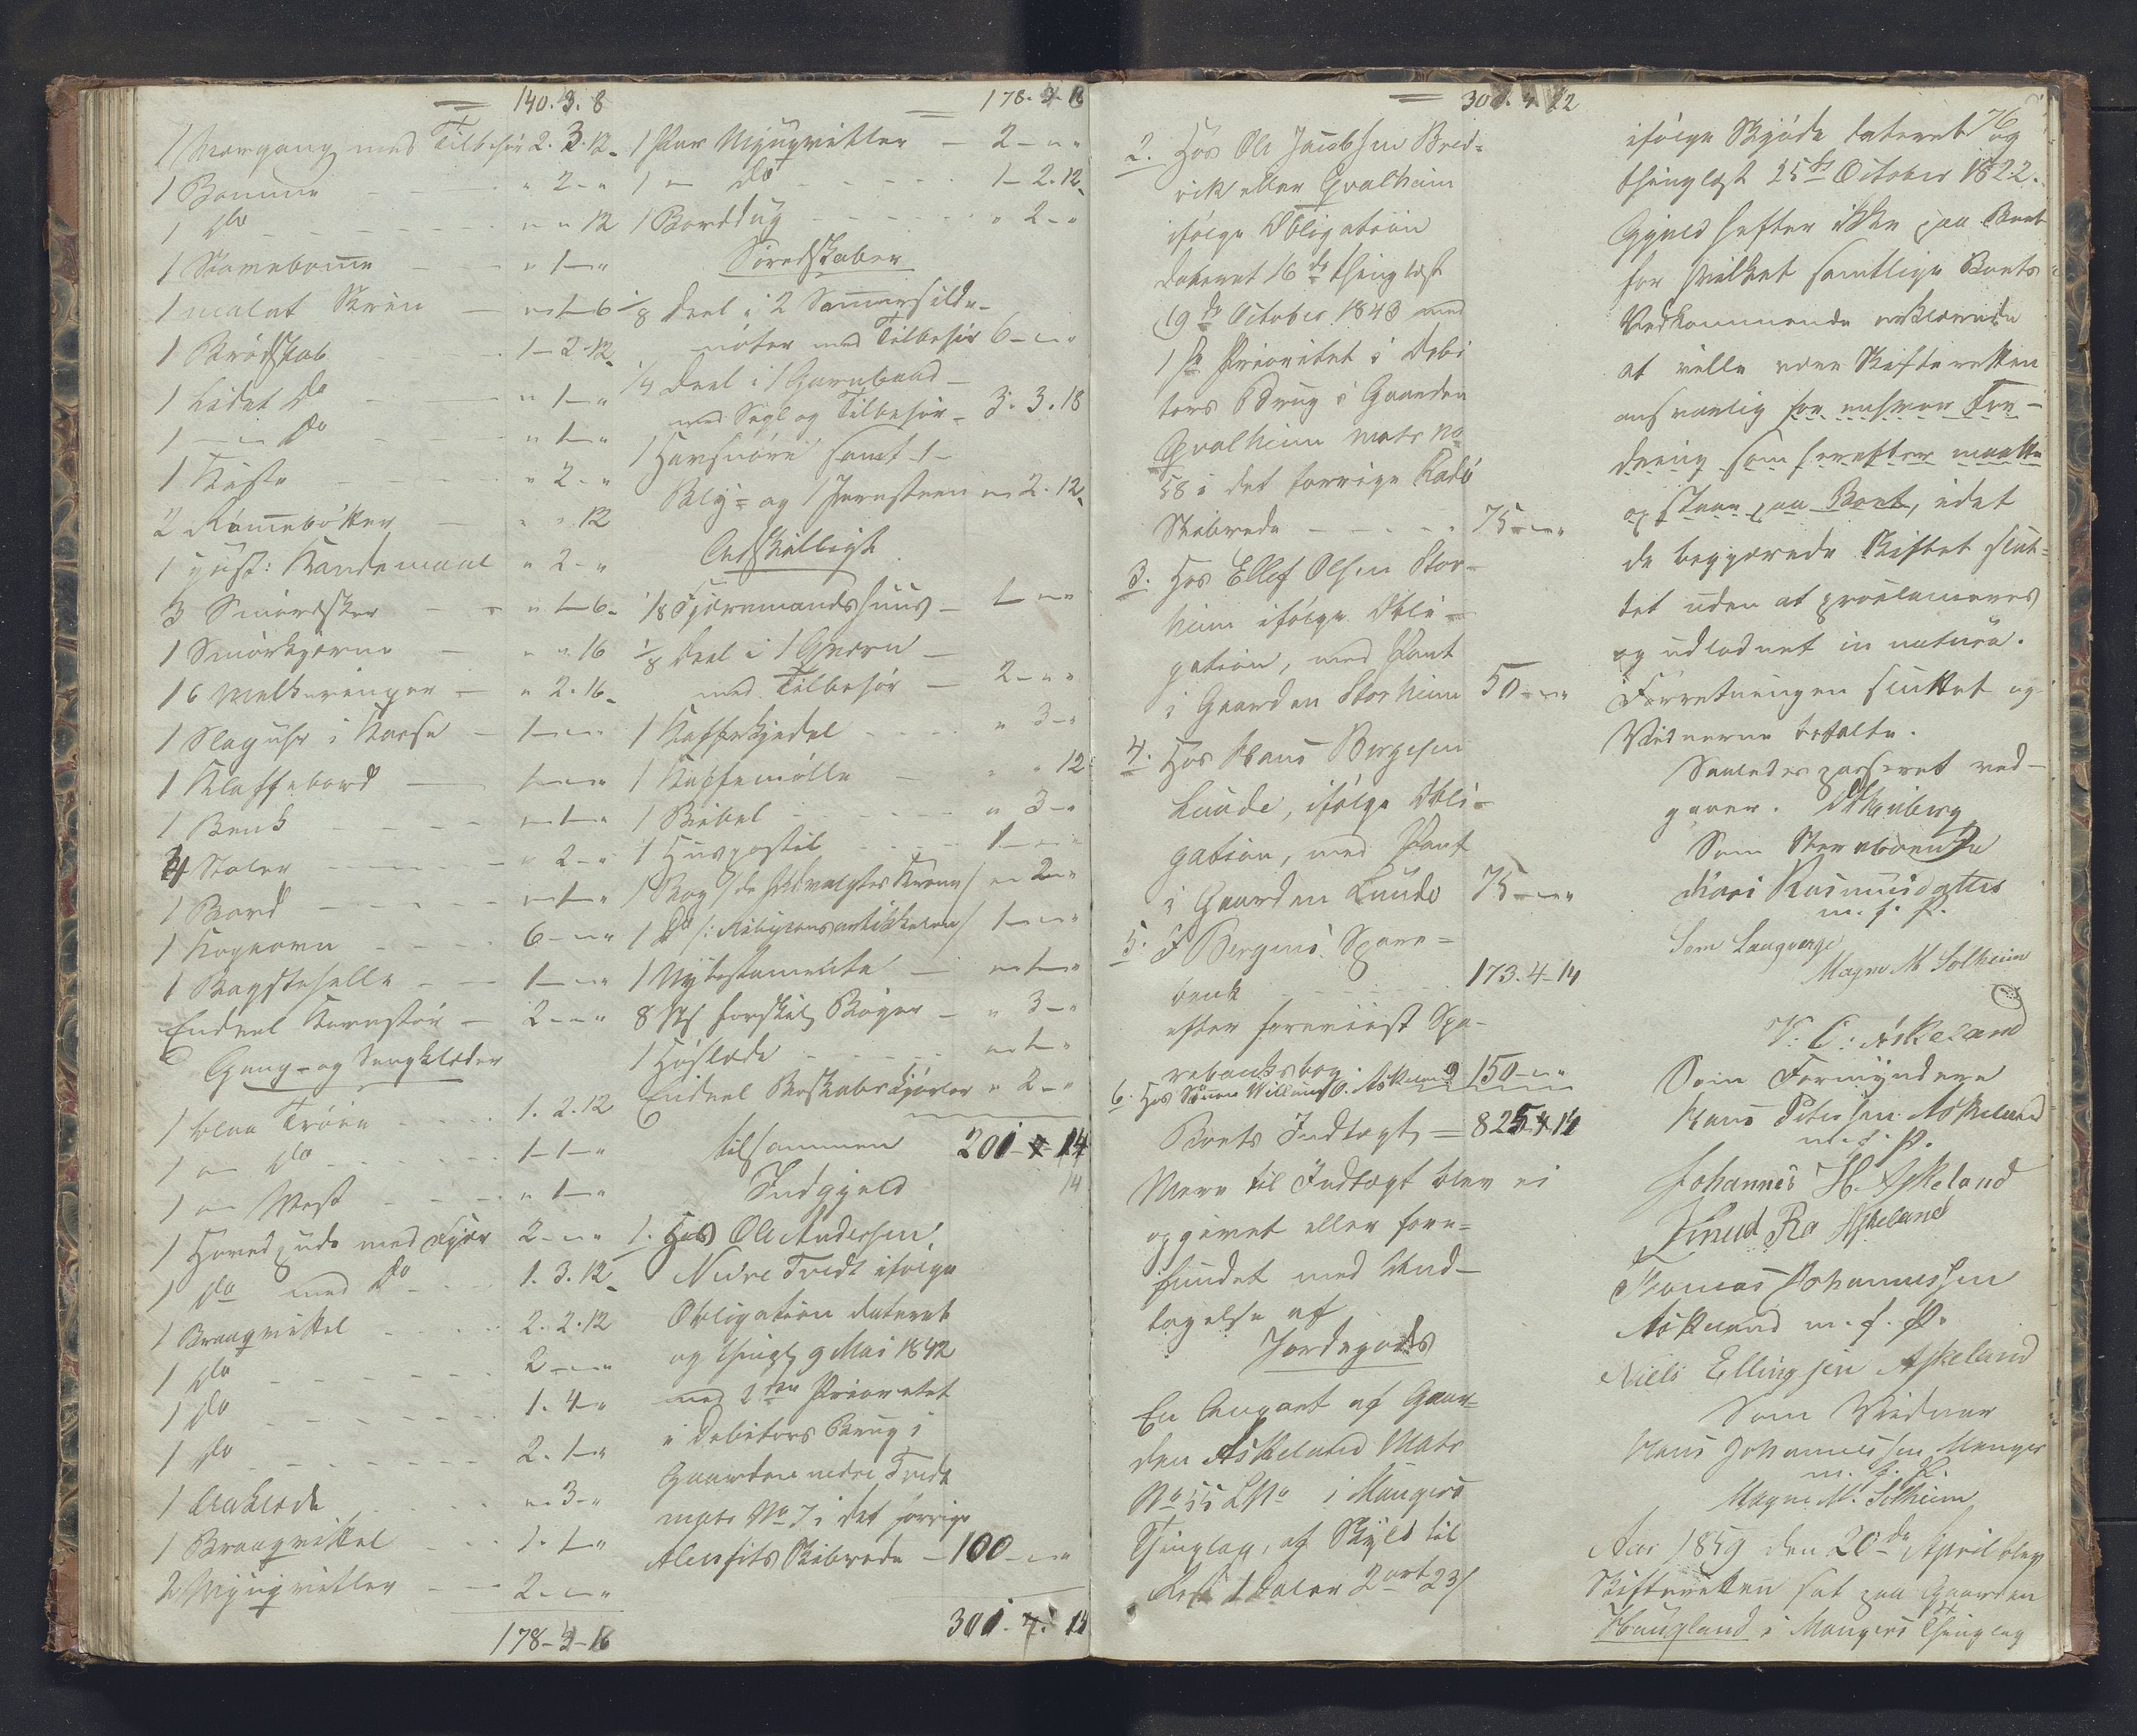 140. 3. 8
1 Mangang med Tilbehör 2. 3. 12
1 Bomme " 2 - "
1 Do " " 12
1 Kornebomme " 1 - "
1 malet Skrin " 1 - 6
1 Brödskab 1 - 2 - 12
1 Lidet Do " 1 - "
1 — Do " 1 - "
1 Kiste " 2 - "
2 Römmebötter " " 12
1 Kandemaal " 2 - "
3 Smöræsker " 1 - 6
1 Smörkjerne " " 16
16 Melkeringer " 2. 16
1 Slaguhr i Kasse 1 - " "
1 Klaffebord 1 - " "
1 Benk " 1 - "
4 Stoler " 2 - "
1 Bord " 1 - "
1 Kogeovn 6 - " "
1 Bagstehelle 1 - " "
Endeel Kornstör 2 - " "
Gang- og Sengklæder
1 blaa Tröie 1. 2. 12
1 — Do 1 - 1 - "
1 — Vest " 1 - "
1 Hovedpude med Fjær 2 - " "
1 Do med Do 1. 3. 12
1 Braaqvittel 2. 2. 12
1 Do 2 - " "
1 Do 1. 4 - "
1 Do 2. 1 - "
1 Aaklæde " 3 - "
1 Braaqvittel 1. 1 - "
2 Mjugqvitler 2 - " "
178 - 4 - 16
178 - 4 - 16
1 Par Mjugqvitler 2 - " "
1 — Do 1 - 2. 12
1 Borddug " 2 - "
Söredskaber
1/8 deel i 2 Sommersilde-
nöter med Tilbehör 6 - " "
1/4 deel i 1 Garnbaad
med Segl og Tilbehör 3. 3. 18
1 Havsnöre samt 1
Bly- og 1 Jernsteen " 2. 12
Adskilligt
1/8 Fjæremandshuus 1 - " "
1/8 deel i 1 Qværn
med Tilbehör 2 - " "
1 Kaffekjedel " 3 - "
1 Kaffemölle " " 12
1 Bibel " 3 - "
1 Huuspostil 1 - " "
1 Bog " 2 - "
1 Do /: Religions artikkelen/ 1 - " "
1 Nytestamente " 1 - "
8 Stk forskjell Böger " 3 - "
1 Höslæde " 1 - "
Endeel Boskabskjörler " 2 - "
tilsammen 201 - 4 - 14
Indgjeld 14
1. Hos Ole Andersen
Nedre Tvedt ifölge
Obligation dateret
og thingl 9 Mai 1842
med 2den Prioritet
i Debitors Brug i
Gaarden nedre Tvedt
matr No 7 i det forrige
Alenfits Skibrede 100 - " "
301. 4. 14
301. 4. 22
2. Hos Ole Jacobsen Bred-
vik eller Qvalheim
ifölge Obligation
dateret 16de thinglæst
19de October 1843 med
1ste Prioritet i Debi
tors Brug i Gaarden
Qvalheim matr No
58 i det forrige Radö
Skibrede 75 - " "
3. Hos Ellef Olsen Stor-
heim ifölge Obli-
gation, med Pant
i Gaarden Storheim 50 - " "
4. Hos Hans Börgesen
Lunde, ifölge Obli-
gation, med Pant
i Gaarden Lunde 75 - " "
5. I Bergens Spare-
bank 173. 4 - 14
efter foreviist Spa-
rebanksbog.
6. Hos Sönnen Willum O. Askeland 150 - " "
Boets Indtægt = 825 - 4 - 14
Mere til Indtægt blev ei
opgivet eller fore-
fundet med Und-
tagelse af
Jordegods
En Anpart af Gaar-
den Askeland Matr
No 55 LNo i Mangers
Thinglag, af Skyld til
Rest 1 daler 2 ort 23 s
76
ifölge Skjöde dateret og
thinglæst 25de October 1822.
Gjæld hefter ikke paa Boet
for hvilket samtlige Boets
Vedkommende erklærede
at ville være Skifteretten
ansvarlig for enhver For-
dring som herefter maatte
opstaae paa Boet, idet
de begjærede Skiftet slut-
tet uden at proclameres
og udlodnet in natura.
Forretningen sluttet og
Vidnerne betalte.
Saaledes passeret ved-
gaaer.
Som Stervboenke
Kari Rasmusdatter
m. f. P.
Som Laugværge
Magne M Solheim
V: O: Askeland
Som Formyndere
Hans Petersen Askeland
m. f. P.
Johannes H. Askeland
Knud Ra Askeland
Thomas Johannessen
Askeland m. f. P.
Niels Ellingsen Askeland
Som Vidner
Hans Johannessen Manger
m. f. P.
Magne M. Solheim
Aar 1859 den 20de April blev
Skifteretten sat paa Gaarden
Haugland i Mangers Thinglag